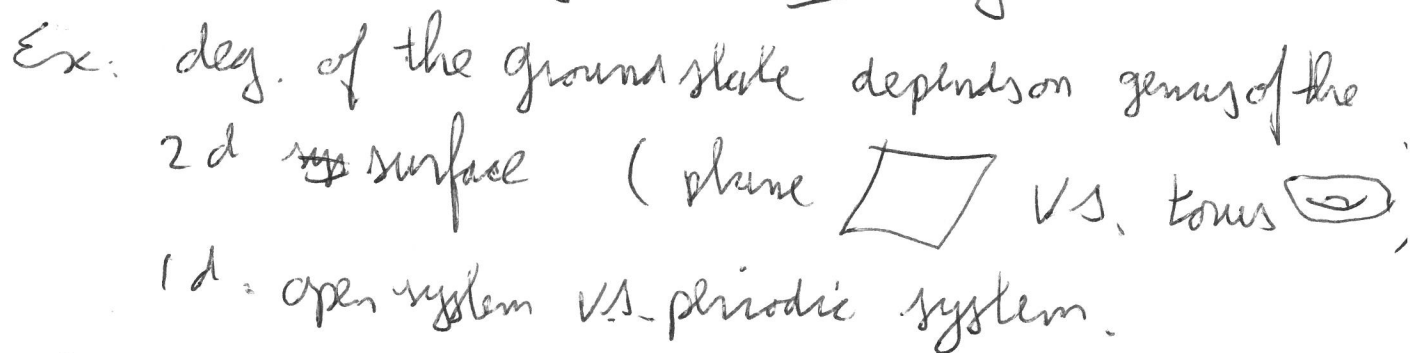 Ex: deg. of the ground state depends on genus of the
2d surface ( plane vs. torus ,
1d: open system vs. periodic system.